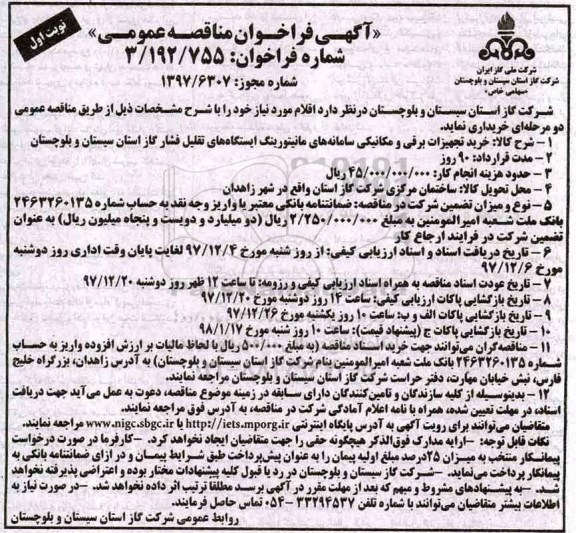 نوبت اول
«آگهی فراخوان مناقصه عمومی»
شماره فراخوان: ۳/۱۹۲/۷۵۵
شماره مجوز: ۱۳۹۷/۶۳۰۷
شرکت ملی گاز ایران
شرکت گاز استان سیستان و بلوچستان
«سهامی خاص»
شرکت گاز استان سیستان و بلوچستان درنظر دارد اقلام مورد نیاز خود را با شرح مشخصات ذیل از طریق مناقصه عمومی
دو مرحله‌ای خریداری نماید.
۱- شرح کالا: خرید تجهیزات برقی و مکانیکی سامانه‌های مانیتورینگ ایستگاه‌های تقلیل فشار گاز استان سیستان و بلوچستان
۲- مدت قرارداد: ۹۰ روز
۳- حدود هزینه انجام کار: ۴۵/۰۰۰/۰۰۰/۰۰۰ ریال
۴- محل تحویل کالا: ساختمان مرکزی شرکت گاز استان واقع در شهر زاهدان
۵- نوع و میزان تضمین شرکت در مناقصه: ضمانتنامه بانکی معتبر یا واریز وجه نقد به حساب شماره ۲۴۶۳۲۶۰۱۳۵
بانک ملت شعبه امیرالمومنین به مبلغ ۲/۲۵۰/۰۰۰/۰۰۰ ریال (دو میلیارد و دویست و پنجاه میلیون ریال) به عنوان
تضمین شرکت در فرایند ارجاع کار
۶- تاریخ دریافت اسناد و اسناد ارزیابی کیفی: از روز شنبه مورخ ۹۷/۱۲/۴ لغایت پایان وقت اداری روز دوشنبه
مورخ ۹۷/۱۲/۶
۷- تاریخ عودت اسناد مناقصه به همراه اسناد ارزیابی کیفی و رزومه: تا ساعت ۱۲ ظهر روز دوشنبه ۹۷/۱۲/۲۰
۸- تاریخ بازگشایی پاکات ارزیابی کیفی: ساعت ۱۴ روز دوشنبه مورخ ۹۷/۱۲/۲۰
۹- تاریخ بازگشایی پاکات الف و ب: ساعت ۱۰ روز یکشنبه مورخ ۹۷/۱۲/۲۶
۱۰- تاریخ بازگشایی پاکات ج (پیشنهاد قیمت): ساعت ۱۰ روز شنبه مورخ ۹۸/۱/۱۷
۱۱- مناقصه‌گران می‌توانند جهت خرید اسناد مناقصه (به مبلغ ۵۰۰/۰۰۰ ریال با لحاظ مالیات بر ارزش افزوده واریز به حساب
شماره ۲۴۶۳۲۶۰۱۳۵ بانک ملت شعبه امیرالمومنین بنام شرکت گاز استان سیستان و بلوچستان) به آدرس زاهدان، بزرگراه خلیج
فارس، نبش خیابان مهارت، دفتر حراست شرکت گاز استان سیستان و بلوچستان مراجعه نمایند.
۱۲- بدینوسیله از کلیه سازندگان و تامین‌کنندگان دارای سابقه در زمینه موضوع مناقصه، دعوت به عمل می‌آید جهت دریافت
اسناد، در مهلت تعیین شده، همراه با نامه اعلام آمادگی شرکت در مناقصه، به آدرس فوق مراجعه نمایند.
متقاضیان می‌توانند برای رویت آگهی به آدرس پایگاه اینترنتی http://iets.mporg.ir یا www.nigc.sbgc.ir مراجعه نمایند.
نکات قابل توجه: -ارایه مدارک فوق‌الذکر هیچگونه حقی را جهت متقاضیان ایجاد نخواهد کرد. -کارفرما در صورت درخواست
پیمانکار منتخب به میزان ۲۵درصد مبلغ اولیه پیمان را به عنوان پیش‌پرداخت طبق شرایط پیمان و در ازای ضمانتنامه بانکی به
پیمانکار پرداخت می‌نماید. -شرکت گاز استان سیستان و بلوچستان در رد یا قبول کلیه پیشنهادات مختار بوده و اعتراضی پذیرفته نخواهد
شد. -به پیشنهادهای مشروط و مبهم که بعد از مهلت مقرر در آگهی برسد مطلقا ترتیب اثر داده نخواهد شد. -در صورت نیاز به
اطلاعات بیشتر متقاضیان می‌توانند با شماره تلفن ۳۳۲۹۴۵۳۷-۰۵۴ تماس حاصل فرمایند.
روابط عمومی شرکت گاز استان سیستان و بلوچستان